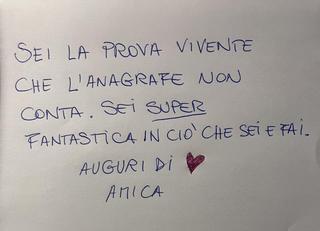 SEI LA PROVA VIVENTE
CHE L'ANAGRAFE NON
CONTA. SEI SUPER
FANTASTICA IN CIÒ CHE SEI E FAI.
AUGURI DI ♥
AMICA